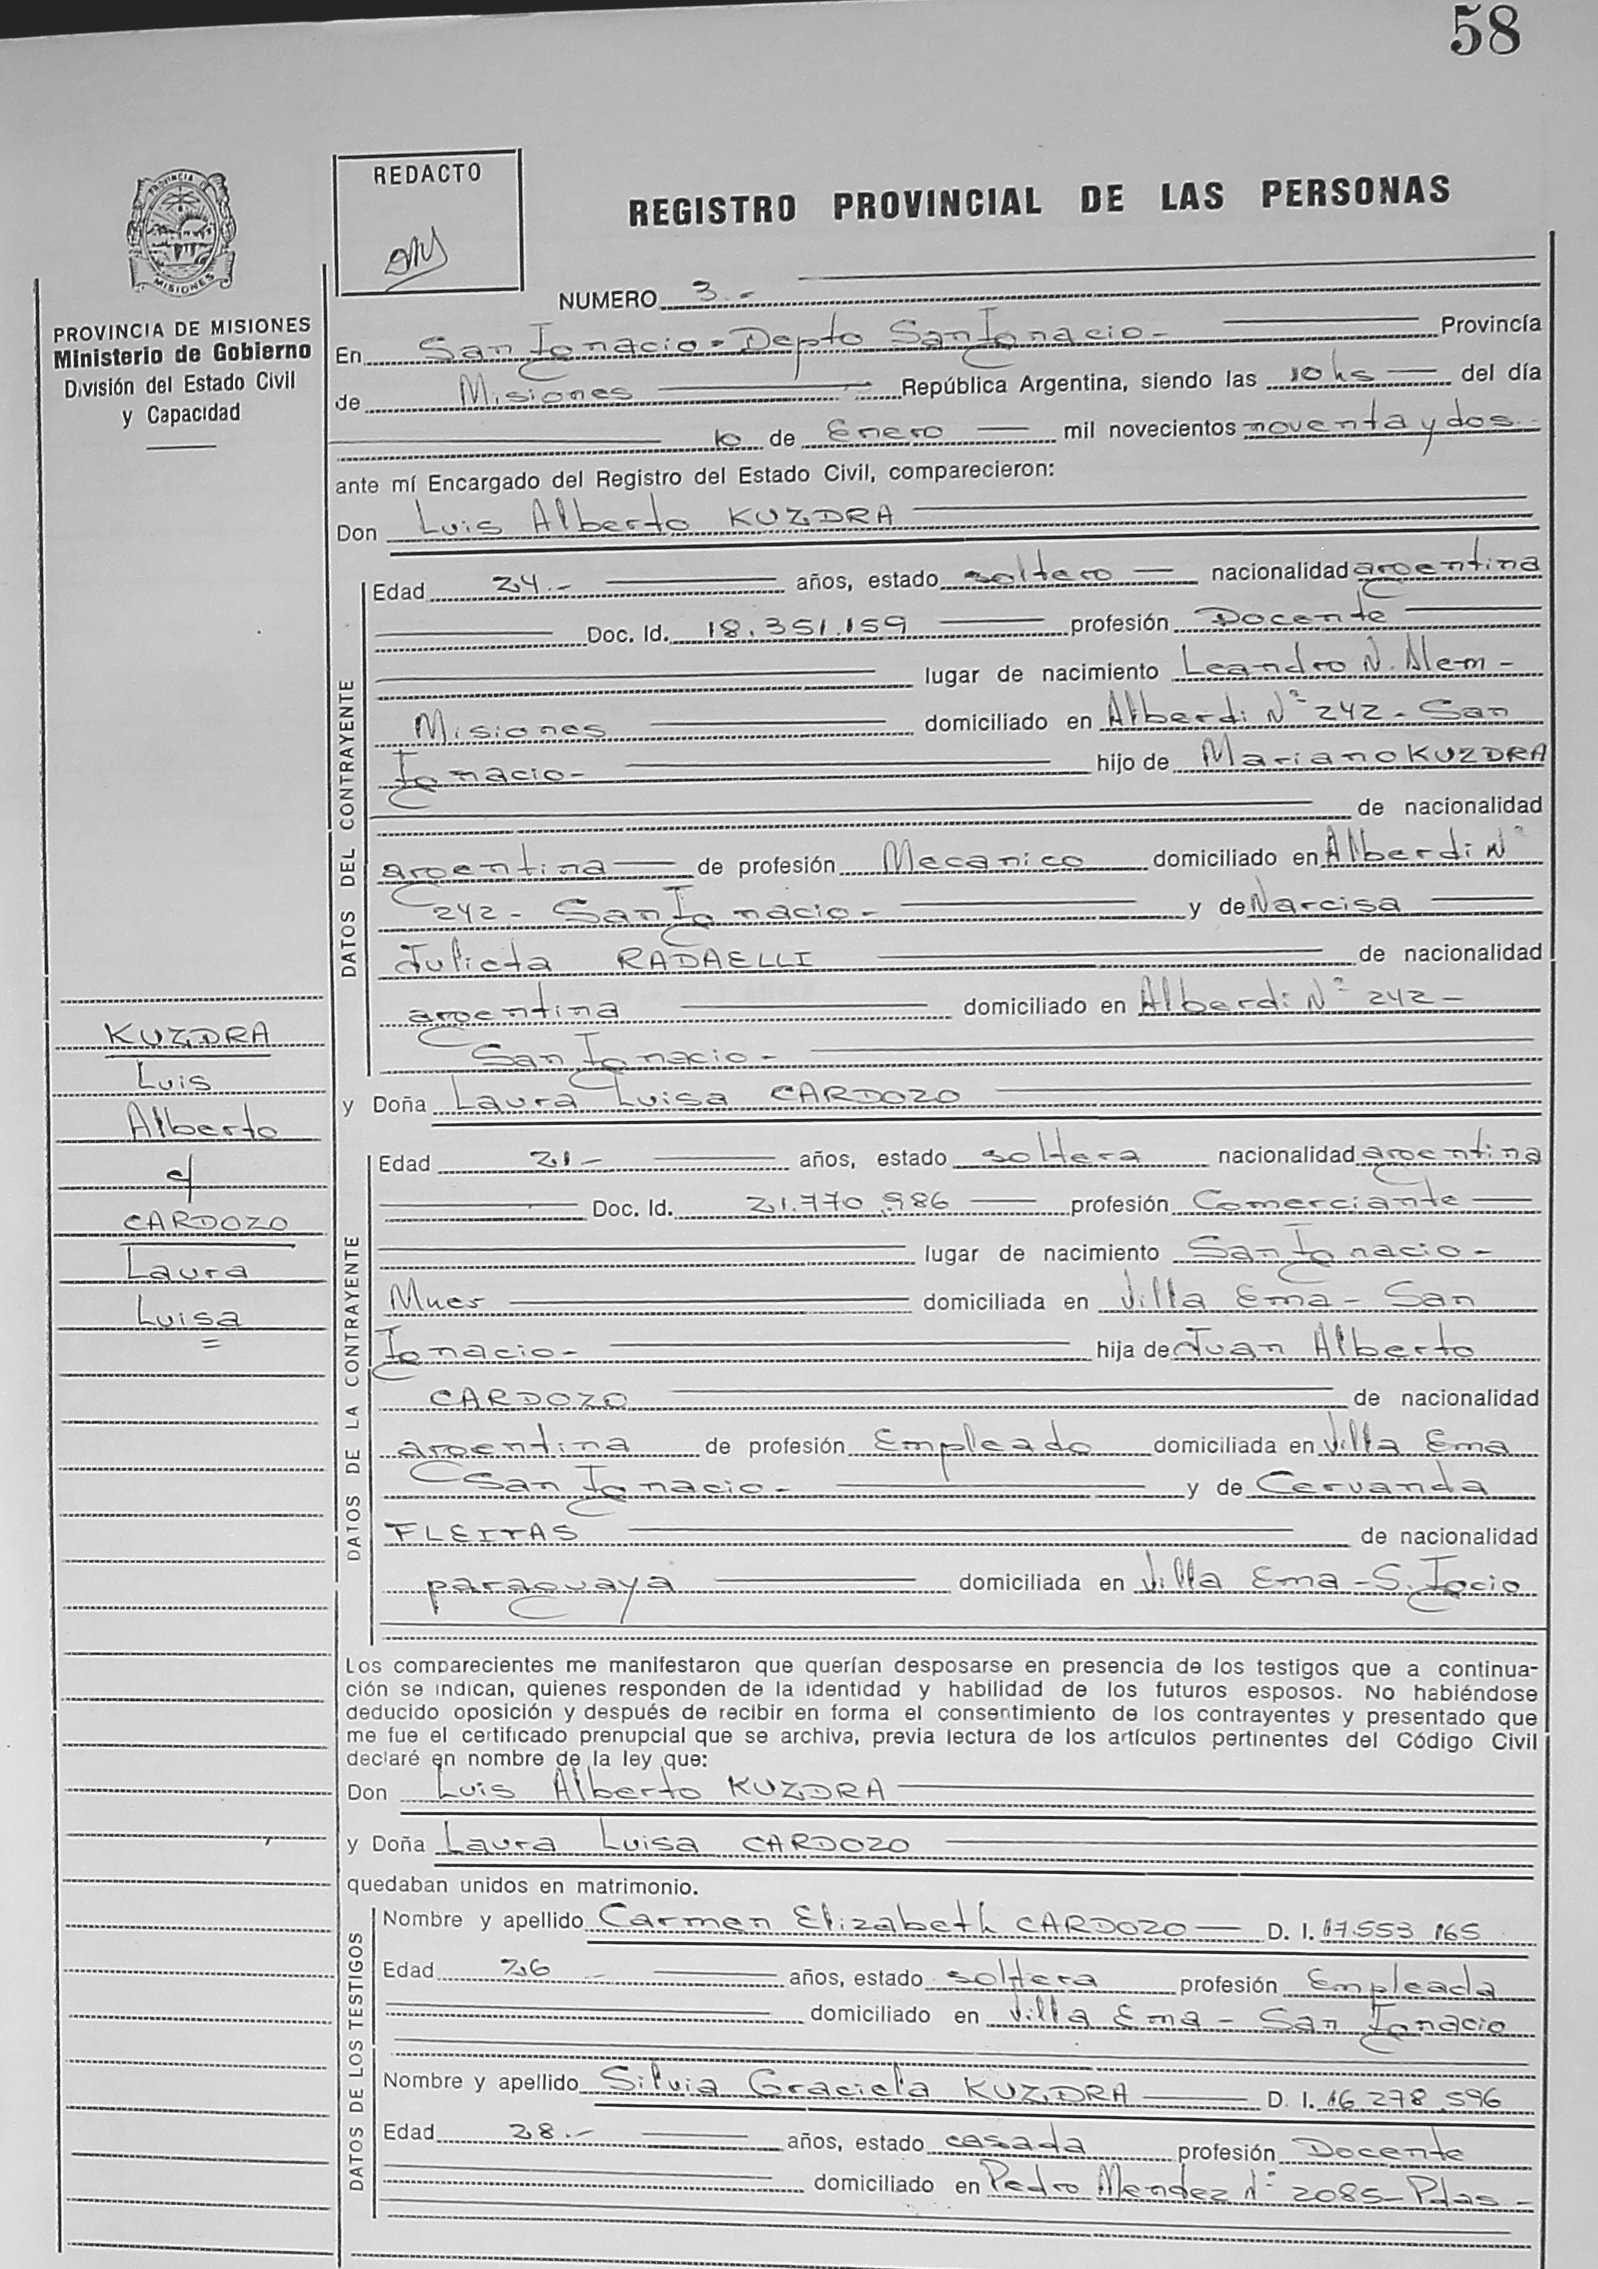 58
REDACTO
REGISTRO PROVINCIAL DE LAS PERSONAS
PROVINCIA DE MISIONES
NUMERO 3.-
PROVINCIA DE MISIONES
Ministerio de Gobierno
División del Estado Civil
y Capacidad
En San Ignacio - Depto San Ignacio - Provincia
de Misiones República Argentina, siendo las 10 hs del día
10 de Enero mil novecientos noventa y dos.
ante mí Encargado del Registro del Estado Civil, comparecieron:
Don Luis Alberto KUZDRA
DATOS DEL CONTRAYENTE
Edad 24.- años, estado soltero nacionalidad argentina
Doc. Id. 18.351.159 profesión Docente
lugar de nacimiento Leandro N. Alem -
Misiones domiciliado en Alberdi Nº 242 - San
Ignacio - hijo de Mariano KUZDRA
de nacionalidad
argentina de profesión Mecanico domiciliado en Alberdi Nº
242 - San Ignacio - y de Narcisa
Julieta RADAELLI de nacionalidad
argentina domiciliado en Alberdi Nº 242 -
San Ignacio -
KUZDRA
Luis
Alberto
c/
CARDOZO
Laura
Luisa
y Doña Laura Luisa CARDOZO
DATOS DE LA CONTRAYENTE
Edad 21 - años, estado soltera nacionalidad argentina
Doc. Id. 21.770.986 profesión Comerciante
lugar de nacimiento San Ignacio -
Mnes domiciliada en Villa Ema - San
Ignacio - hija de Juan Alberto
CARDOZO de nacionalidad
argentina de profesión Empleado domiciliada en Villa Ema
San Ignacio - y de Cervanda
FLEITAS de nacionalidad
paraguaya domiciliada en Villa Ema - S. Igcio
Los comparecientes me manifestaron que querían desposarse en presencia de los testigos que a continua-
ción se indican, quienes responden de la identidad y habilidad de los futuros esposos. No habiéndose
deducido oposición y después de recibir en forma el consentimiento de los contrayentes y presentado que
me fue el certificado prenupcial que se archiva, previa lectura de los artículos pertinentes del Código Civil
declaré en nombre de la ley que:
Don Luis Alberto KUZDRA
y Doña Laura Luisa CARDOZO
quedaban unidos en matrimonio.
DATOS DE LOS TESTIGOS
Nombre y apellido Carmen Elizabeth CARDOZO D. I. 17.553 165
Edad 26 - años, estado soltera profesión Empleada
domiciliado en Villa Ema - San Ignacio
Nombre y apellido Silvia Graciela KUZDRA D. I. 16 278 596
Edad 28.- años, estado casada profesión Docente
domiciliado en Pedro Mendez Nº 2085 - Pdas -